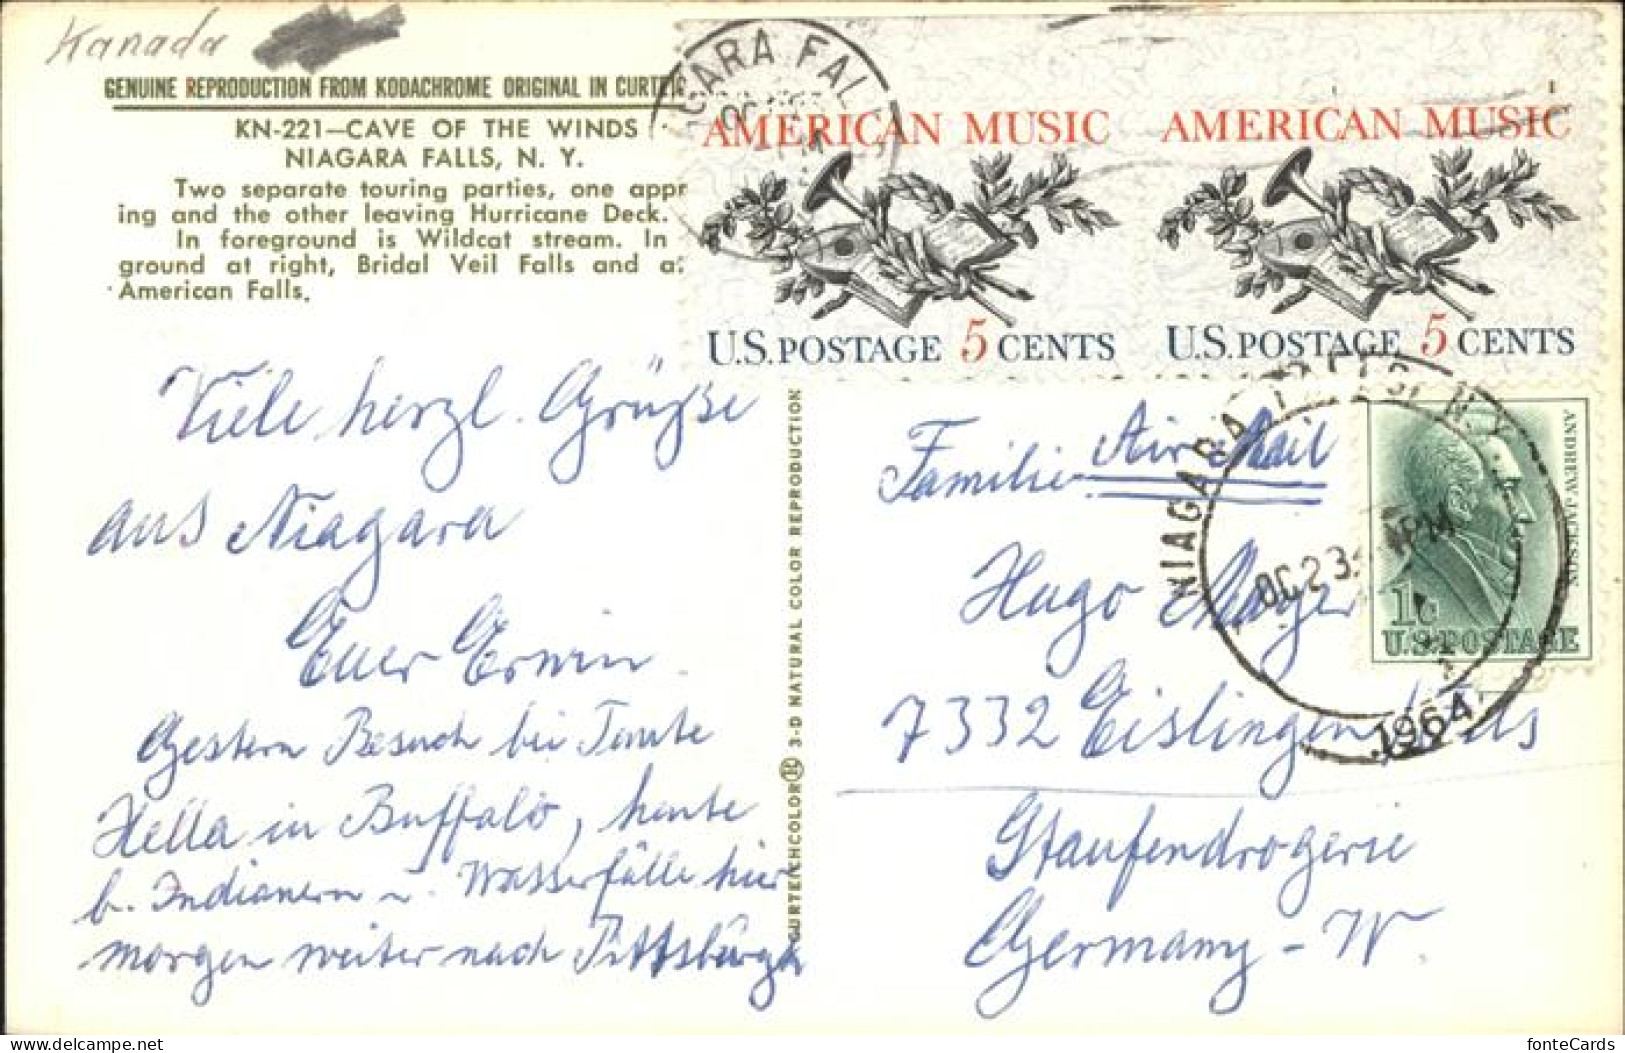 Kanada
GENUINE REPRODUCTION FROM KODACHROME ORIGINAL IN
KN-221—CAVE OF THE WINDS
NIAGARA FALLS, N. Y.
Two separate touring parties, one appr
ing and the other leaving Hurricane Deck.
In foreground is Wildcat stream. In
ground at right, Bridal Veil Falls and a
American Falls.
Viele herzl. Grüße
aus Niagara
Euer Erwin
Gestern Besuch bei Tante
Hella in Buffalo, heute
b. Indianern u. Wasserfälle hier
morgen weiter nach Pittsburgh
CURTEICHCOLOR 3-D NATURAL COLOR REPRODUCTION
AMERICAN MUSIC
U.S. POSTAGE 5 CENTS
AMERICAN MUSIC
U.S. POSTAGE 5 CENTS
GARA FALL
ANDREW JACKSON
1c
U.S. POSTAGE
NIAGARA FALLS, N.Y.
OC 23
PM
1964
Air Mail
Familie
Hugo Mayer
7332 Eislingen/Fils
Staufendrogerie
Germany-W.
fonteCards